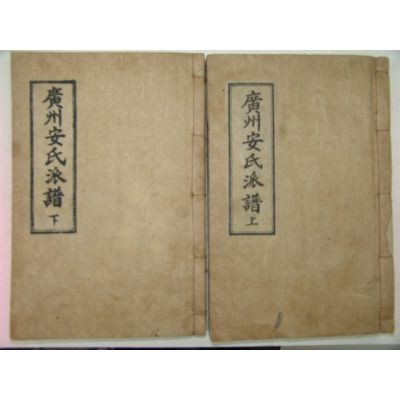 廣州安氏派譜 下
廣州安氏派譜 上